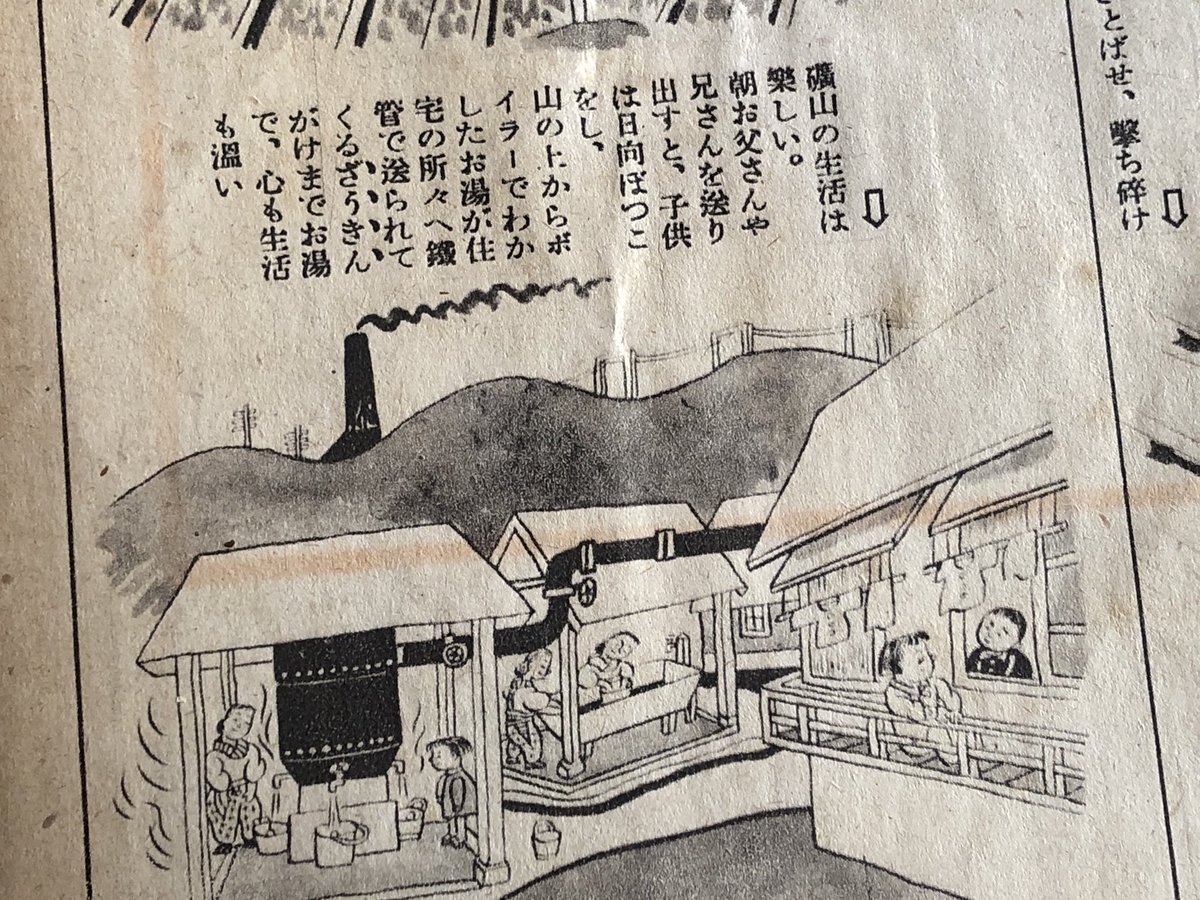 とばせ、擊ち碎け
⇩
⇩
礦山の生活は
樂しい。
朝お父さんや
兄さんを送り
出すと、子供
は日向ぼつこ
をし、
山の上からボ
イラーでわか
したお湯が住
宅の所々へ鐵
管で送られて
くるざうきん
がけまでお湯
で、心も生活
も溫い